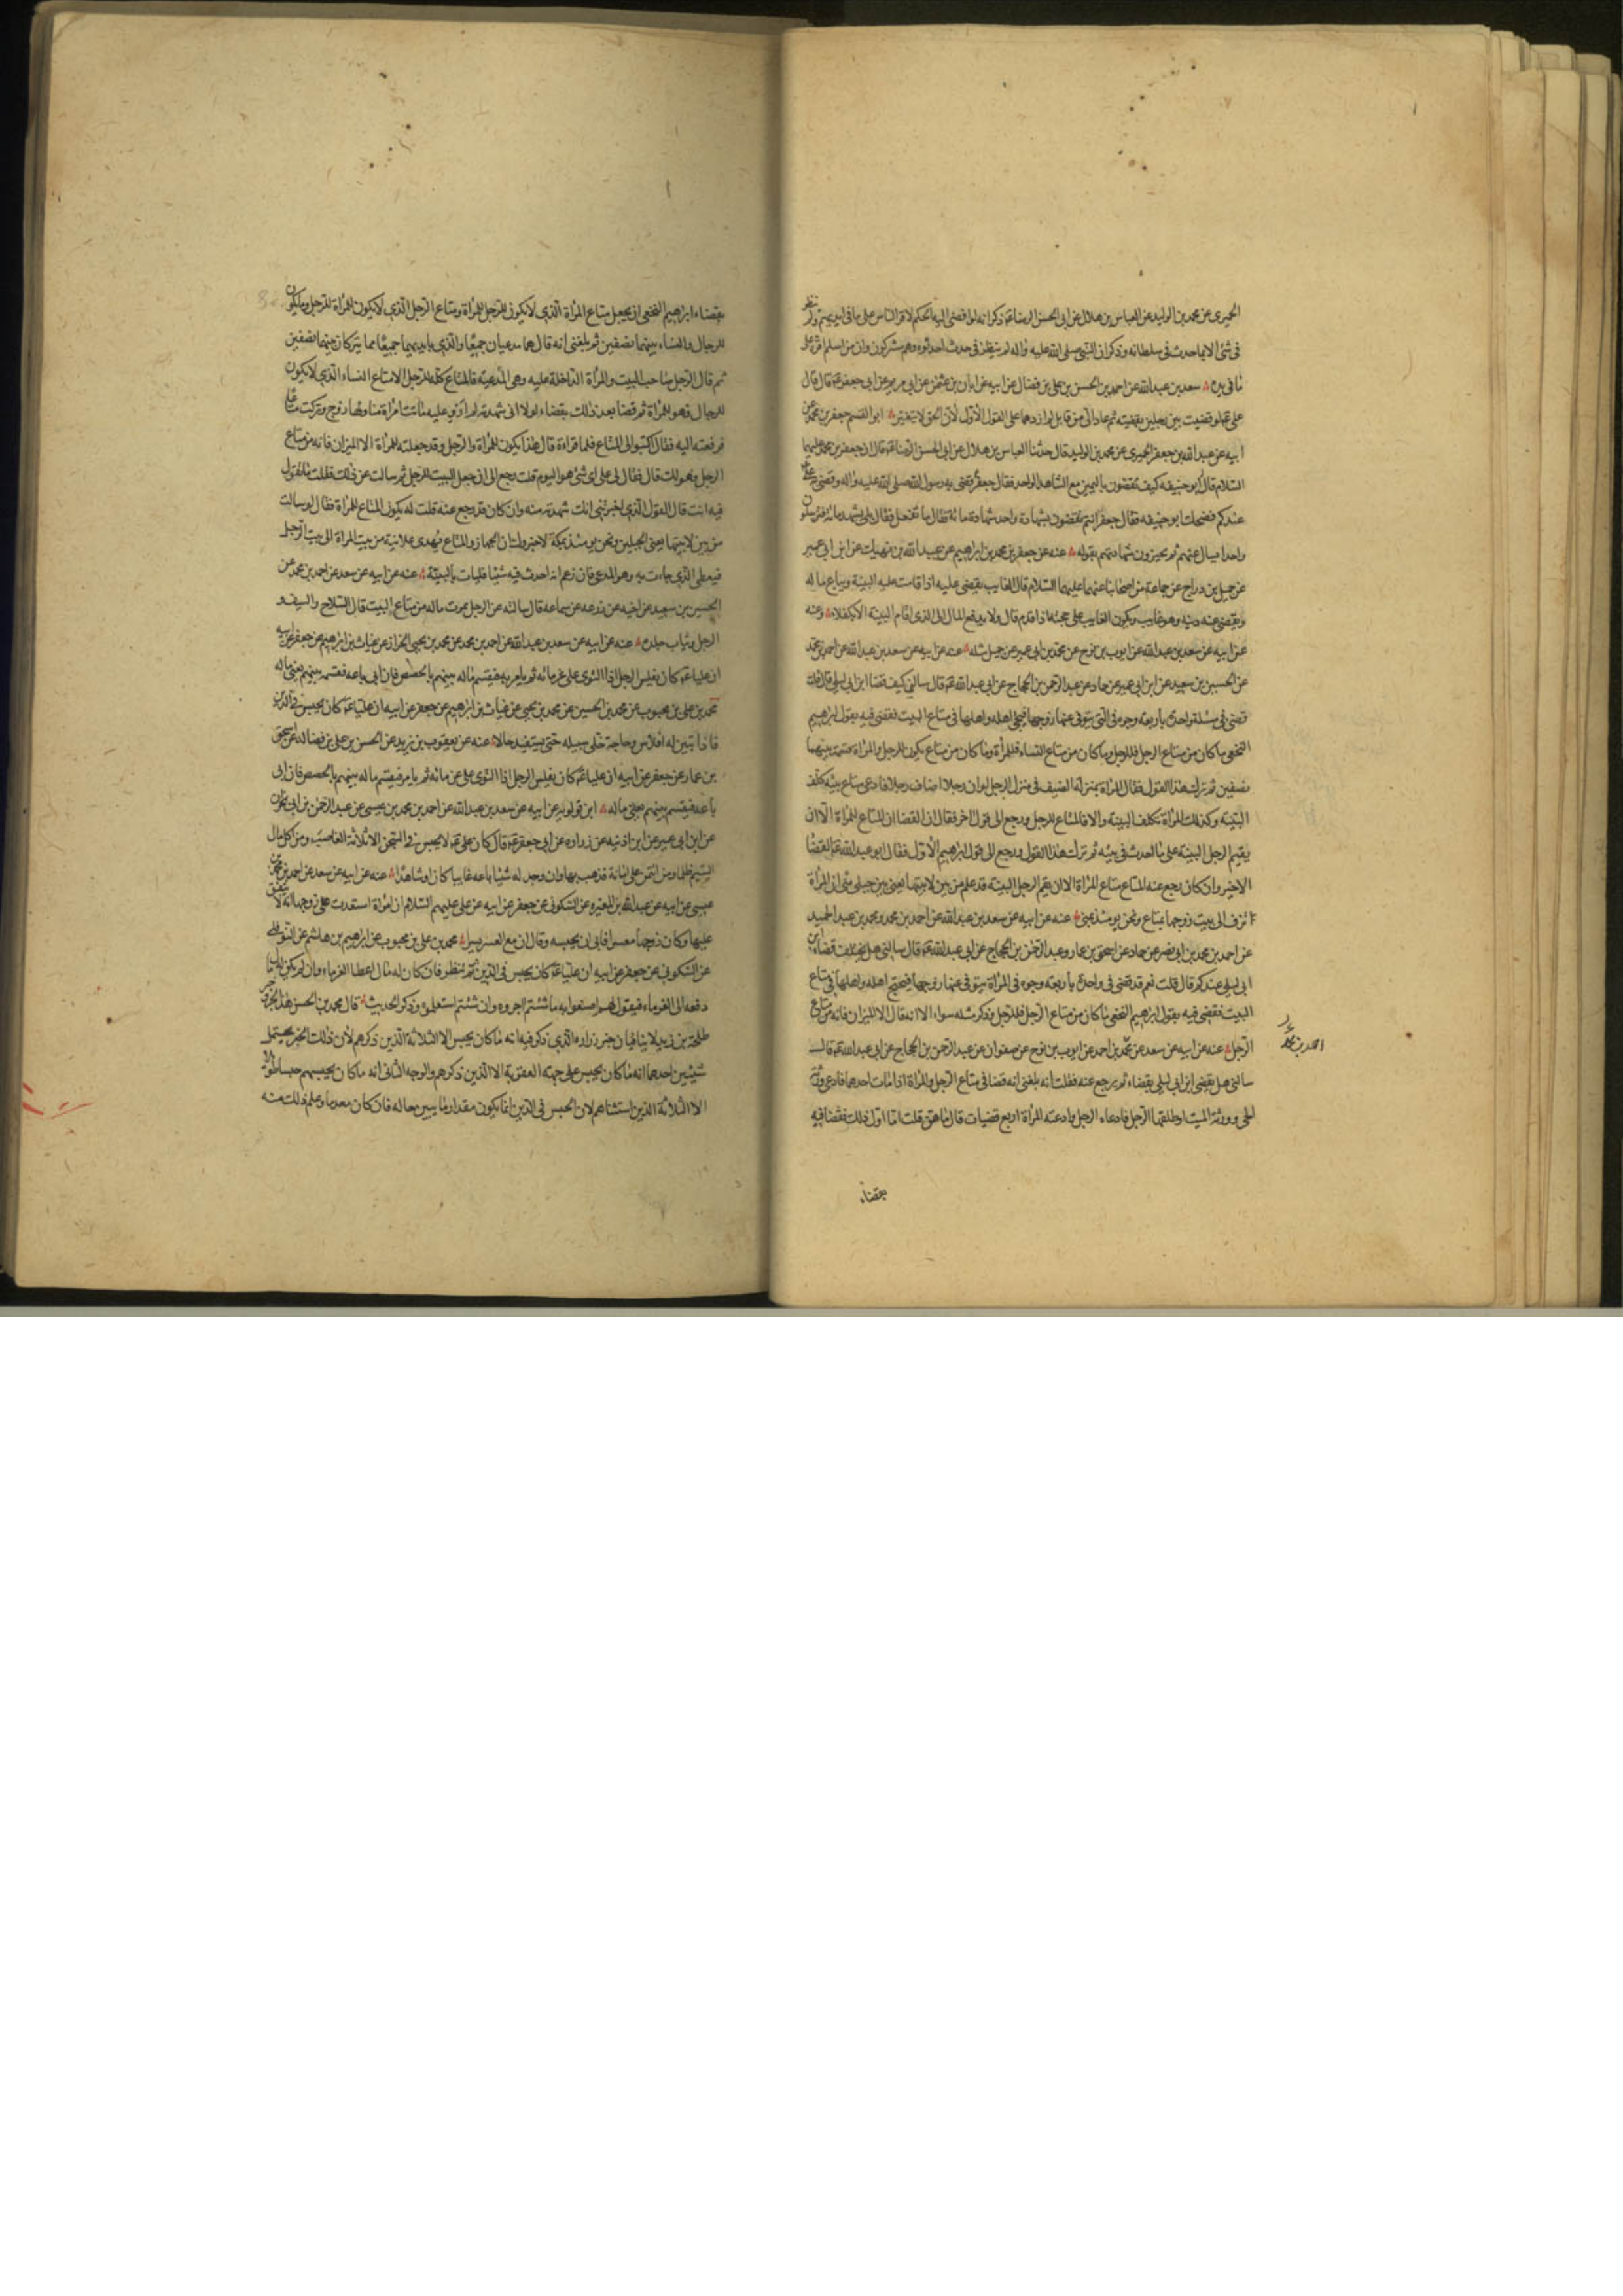 الحميرى عن محمد بن الوليد عن العباس بن هلال عن ابى الحسن الرضا ع ذكر انه لو افضى اليه الحكم لاقر الناس على ما فى ايديهم ولم ينظر
فى شئ الا بما حدث فى سلطانه وذكر ان النبى صلى الله عليه واله لم ينظر فى حدث احدثوه وهم مشركون وان من اسلم اقره على
ما فى يده سعد بن عبد الله عن احمد بن الحسن بن على بن فضال عن ابيه عن ابان بن عثمن عن ابى مريم عن ابى جعفر ع قال قال
على ع لو قضيت بين رجلين بقضية ثم عادا الى من قابل لم ازدهما على القول الأول لأن الحق لا يتغير ابو القسم جعفر بن محمد عن
ابيه عن عبد الله بن جعفر الحميرى عن محمد بن الوليد قال حدثنا العباس بن هلال عن ابى الحسن الرضا ع قال ان جعفر بن محمد عليهما
السلام قال له ابو حنيفه كيف تقضون باليمين مع الشاهد الواحد فقال جعفر قضى به رسول الله صلى الله عليه واله وقضى به على
عندكم فضحك ابو حنيفه فقال جعفر انتم تقضون بشهادة واحد شهادة مائة فقال ما نفعل فقال بلى يشهد مائة فترسلون
واحدا يسال عنهم ثم تجيزون شهادتهم بقوله عنه عن جعفر بن محمد بن ابراهيم عن عبد الله بن نهيك عن ابن ابى عمير
عن جميل بن دراج عن جماعة من اصحابنا عنهما عليهما السلام قال الغايب يقضى عليه اذا قامت عليه البينة ويباع ماله
ويقضى عنه دينه وهو غايب ويكون الغايب على حجته اذا قدم قال ولا يدفع المال الى الذى اقام البينة الا بكفلاء وعنه
عن ابيه عن سعد بن عبد الله عن ايوب بن نوح عن محمد بن ابى عمير عن جميل مثله عنه عن ابيه عن سعد بن عبد الله عن احمد بن محمد
عن الحسين بن سعيد عن ابن ابى عمير عن حماد عن عبد الرحمن بن الحجاج عن ابى عبد الله ع قال سالنى كيف قضا ابن ابى ليلى قال قلت
قضى فى مسئلة واحدة باربعة وجوه فى التى يتوفى عنها زوجها فيجئ اهله واهلها فى متاع البيت فقضى فيه بقول ابراهيم
النخعى ما كان من متاع الرجل فللرجل وما كان من متاع النساء فللمرأة وما كان من متاع يكون للرجل والمرأة قسمه بينهما
نصفين ثم ترك هذا القول فقال المرأة بمنزلة الضيف فى منزل الرجل لو ان رجلا اضاف رجلا فادعى متاع بيته كلف
البينة وكذلك المرأة تكلف البينة والا فالمتاع للرجل ورجع الى قول اخر فقال ان القضا ان المتاع للمرأة الا ان
يقيم الرجل البينة على ما احدث فى بيته ثم ترك هذا القول ورجع الى قول ابراهيم الأول فقال ابو عبد الله ع القضا
الاخير وان كان رجع عنه المتاع متاع المرأة الا ان يقيم الرجل البينة قد علم من بين لابتيها يعنى بين جبلى منى ان المرأة
تزف الى بيت زوجها بمتاع ونحن يومئذ بمنى عنه عن ابيه عن سعد بن عبد الله عن احمد بن محمد ومحمد بن عبد الحميد
عن احمد بن محمد بن ابى نصر عن حماد عن اسحق بن عمار وعبد الرحمن بن الحجاج عن ابى عبد الله ع قال سالنى هل يختلف قضاء ابن
ابى ليلى عندكم قال قلت نعم قد قضى فى واحدة باربعة وجوه فى المرأة يتوفى عنها زوجها فيحتج اهله واهلها فى متاع
البيت فقضى فيه بقول ابراهيم النخعى ما كان من متاع الرجل فللرجل وذكر مثله سواء الا انه قال الا الميزان فانه من متاع
الرجل عنه عن ابيه عن سعد عن محمد بن احمد عن ايوب بن نوح عن صفوان عن عبد الرحمن بن الحجاج عن ابى عبد الله ع قال
سالنى هل يقضى ابن ابى ليلى بقضاء ثم يرجع عنه فقلت انه بلغنى انه قضا فى متاع الرجل والمرأة اذا مات احدهما فادعى ورثة
الحى وورثة الميت او طلقها الرجل فادعاه الرجل وادعته المرأة اربع قضيات قال ما هن قلت اما اول ذلك فقضا فيه
بقضاء
بقضاء ابراهيم النخعى ان يجعل متاع المرأة الذى لا يكون للرجل للمرأة ومتاع الرجل الذى لا يكون للمرأة للرجل وما يكون
للرجال والنساء بينهما نصفين ثم بلغنى انه قال هما مدعيان جميعا والذى بايديهما جميعا مما يتركان بينهما نصفين
ثم قال الرجل صاحب البيت والمرأة الداخلة عليه وهى المدعية فالمتاع كله للرجل الا متاع النساء الذى لا يكون
للرجال فهو للمرأة ثم قضا بعد ذلك بقضاء لولا انى شهدته لم اروه عليه ماتت امرأة منا ولها زوج وتركت متاعا
فرفعته اليه فقال اكتبوا لى المتاع فلما قراه قال هذا يكون للمرأة والرجل وقد جعلته للمرأة الا الميزان فانه من متاع
الرجل فهو لك قال فقال لى على اى شئ هو اليوم قلت رجع الى ان جعل البيت للرجل ثم سالته عن ذلك فقلت ما تقول
فيه انت قال القول الذى اخبرتنى انك شهدته منه وان كان قد رجع عنه قلت له يكون المتاع للمرأة فقال لو سالت
من بين لابتيها يعنى الجبلين ونحن يومئذ بمكة لاخبروك ان الجهاز والمتاع يهدى علانية من بيت المراة الى بيت الرجل
فيعطى الذى جاءت به وهو المدعى فان زعم انه احدث فيه شيئا فليات بالبينة عنه عن ابيه عن سعد عن احمد بن محمد عن
الحسين بن سعيد عن اخيه عن زرعه عن سماعه قال سالته عن الرجل يموت ماله من متاع البيت قال السلاح والسيف و
الرحل وثياب جلده عنه عن ابيه عن سعد بن عبد الله عن احمد بن محمد عن محمد بن يحيى الخزاز عن غياث بن ابراهيم عن جعفر عن ابيه
ان عليا ع كان يفلس الرجل اذا التوى على غرمائه ثم يامر به فيقسم ماله بينهم بالحصص فان ابى باعه فقسمه بينهم يعنى ماله
محمد بن على بن محبوب عن محمد بن الحسين عن محمد بن يحيى عن غياث بن ابراهيم عن جعفر عن ابيه ان عليا ع كان يحبس فى الدين
فاذا تبين له افلاس وحاجة خلى سبيله حتى يستفيد مالا عنه عن يعقوب بن يزيد عن الحسن بن على بن فضاله عن اسحق
بن عمار عن جعفر عن ابيه ان عليا ع كان يفلس الرجل اذا التوى على غرمائه ثم يامر فيقسم ماله بينهم بالحصص فان ابى
باعه فيقسم بينهم يعنى ماله ابن قولويه عن ابيه عن سعد بن عبد الله عن احمد بن محمد بن عيسى عن عبد الرحمن بن ابى نجران
عن ابن ابى عمير عن ابن اذينه عن زراره عن ابى جعفر ع قال كان على ع لا يحبس فى السجن الا ثلاثة الغاصب ومن اكل مال
اليتيم ظلما ومن ائتمن على امانة فذهب بها وان وجد له شيئا باعه غايبا كان او شاهدا عنه عن ابيه عن سعد عن احمد بن محمد بن
عيسى عن ابيه عن عبد الله بن المغيره عن السكونى عن جعفر عن ابيه عن على عليهم السلام ان امرأة استعدت على زوجها انه لا ينفق
عليها وكان زوجها معسرا فابى ان يحبسه وقال ان مع العسر يسرا محمد بن على بن محبوب عن ابراهيم بن هاشم عن النوفلى
عن السكونى عن جعفر عن ابيه ان عليا ع كان يحبس فى الدين ثم ينظر فان كان له مال اعطا الغرماء وان لم يكن له مال
دفعه الى الغرماء فيقول لهم اصنعوا به ما شئتم اجروه وان شئتم استعملوه وذكر الحديث قال محمد بن الحسن هذا الخبر وخبر
طلحة بن زيد لا ينافيان خبر زراره الذى ذكر فيه انه ما كان يحبس الا الثلاثة الذين ذكرهم لأن ذلك الخبر يحتمل
شيئين احدهما انه ما كان يحبس على جهة العقوبة الا الذين ذكرهم والوجه الثانى انه ما كان يحبسهم حبسا طويلا
الا الثلاثة الذين استثناهم لان الحبس فى الدين انما يكون مقدار ما يبين حاله فان كان معدما وعلم ذلك منه